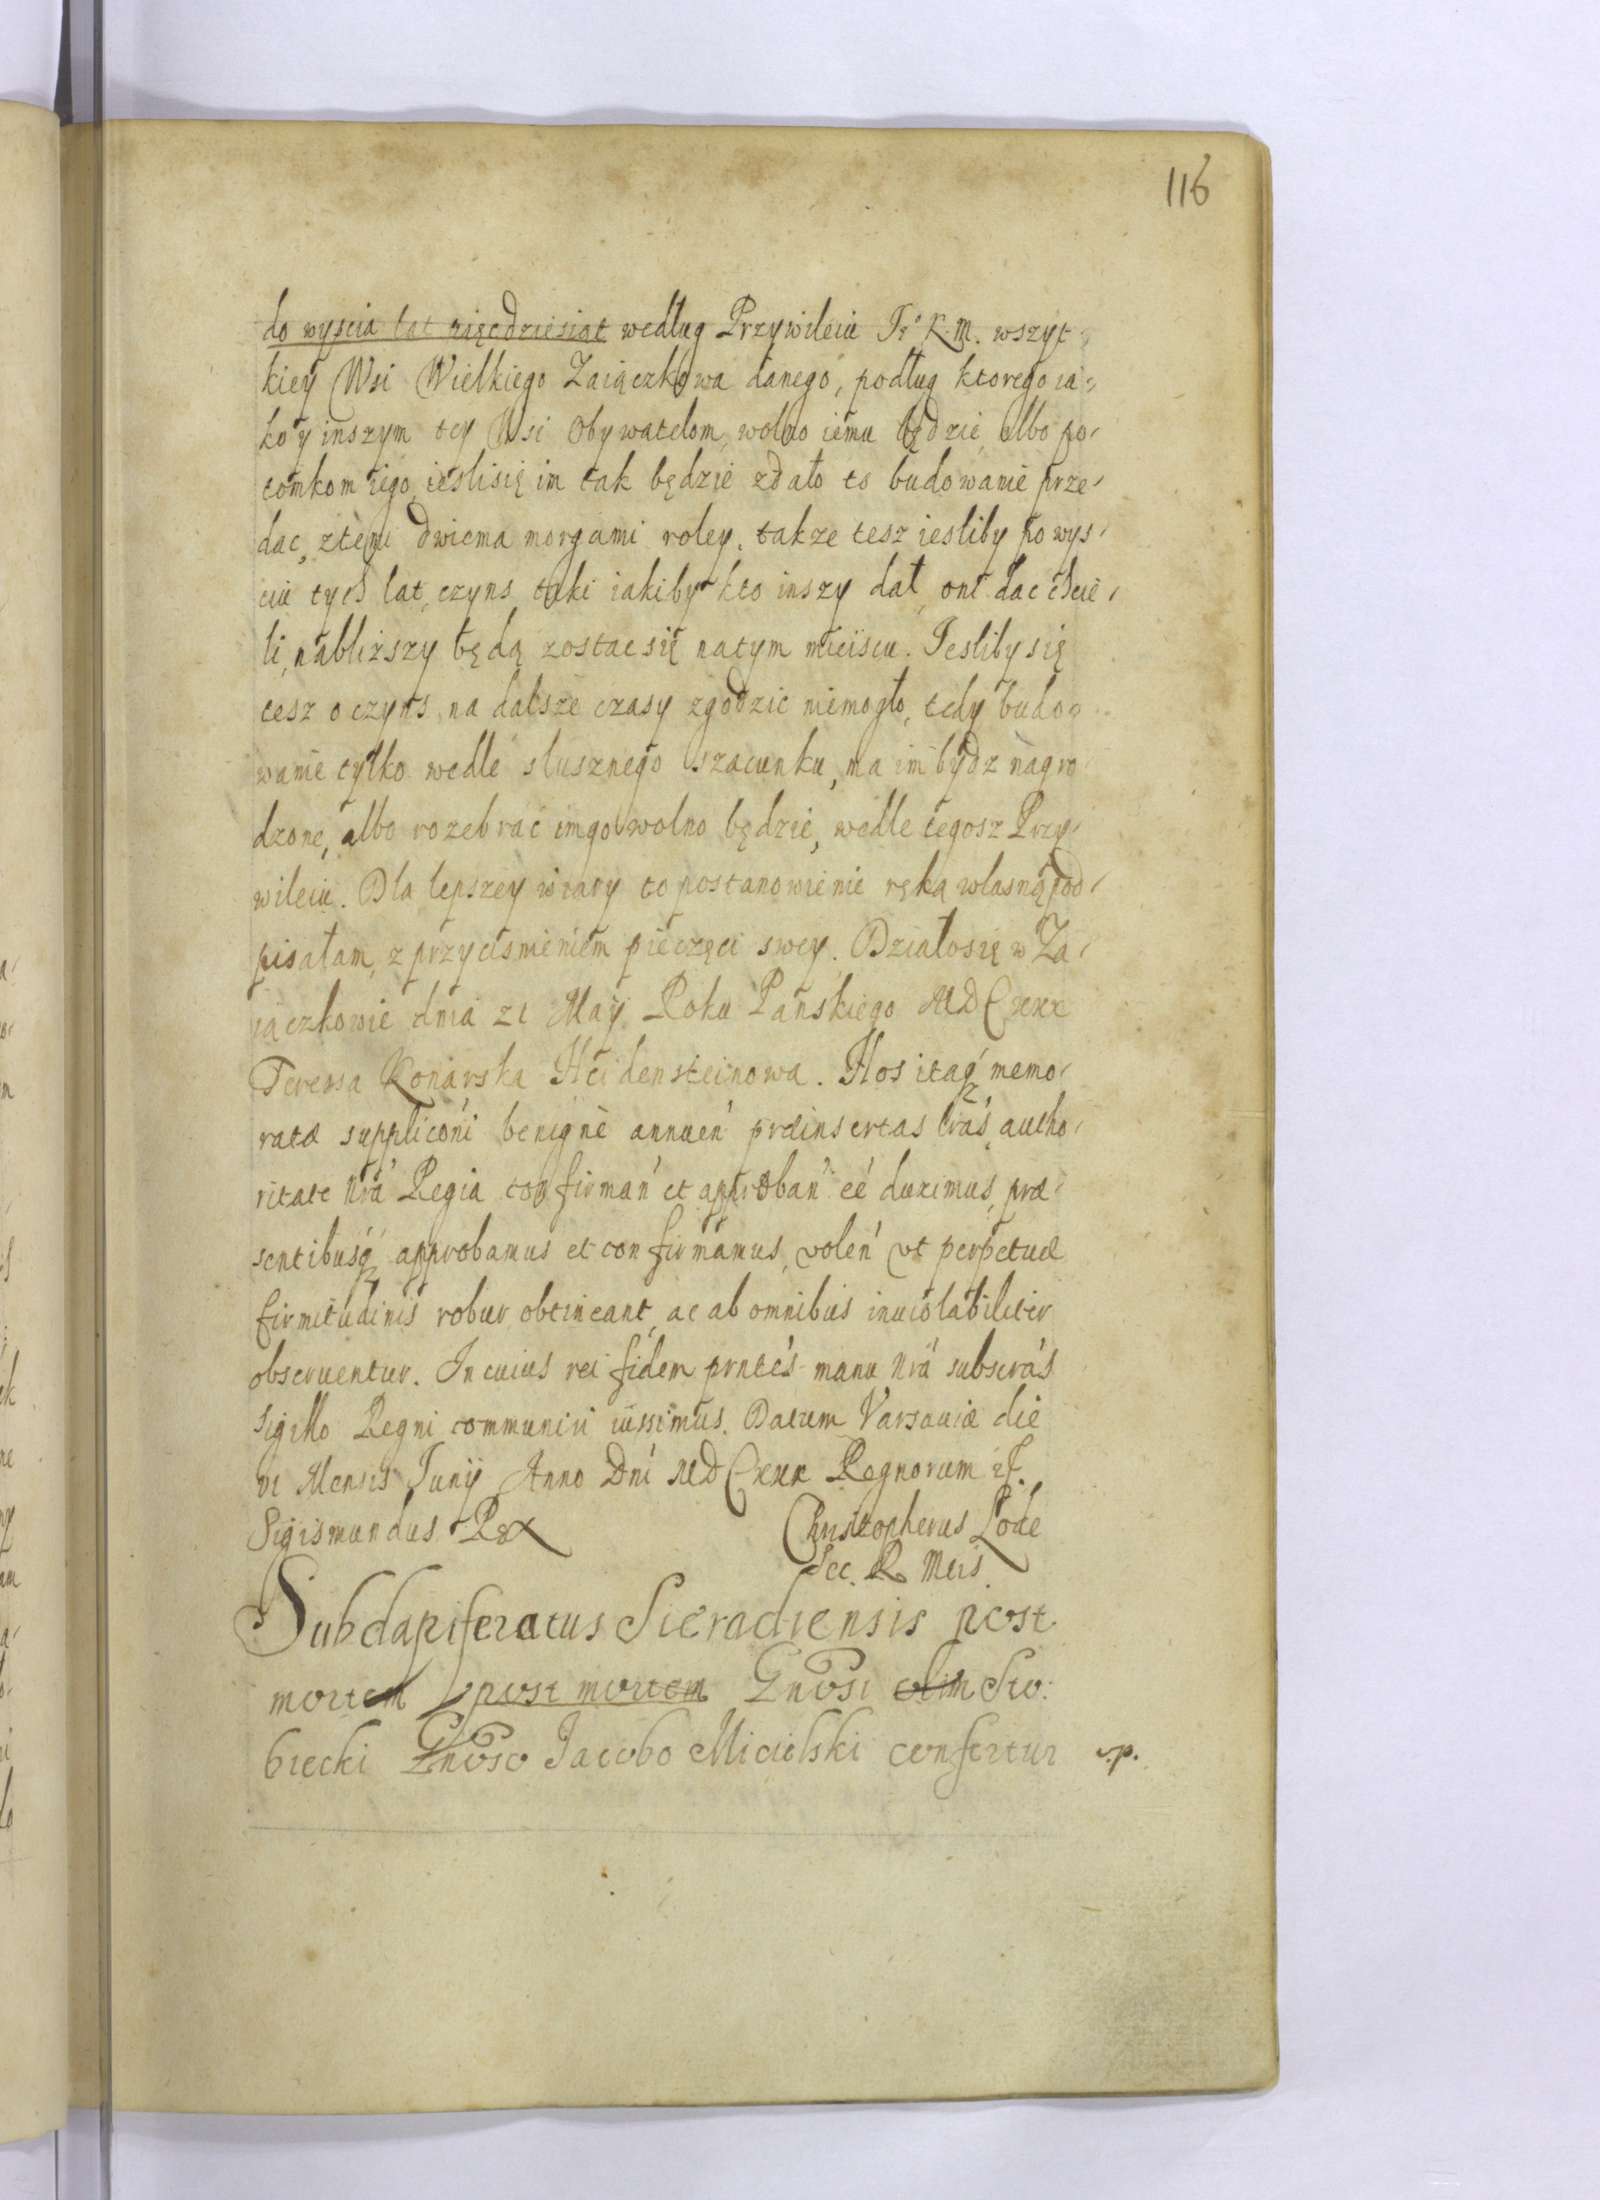 116
do wyscia lat pięcdziesiąt według Przywileiu Jº K. M. wszyt-
kiey Wsi Wielkiego Zaiączkowa danego, podług ktorego ia-
ko y inszym tey Wsi Obywatelom, wolno iemu będzie, albo po-
tomkom iego, ieslisię im tak będzie zdało to budowanie prze-
dac, ztemi dwiema morgami roley. takze tesz iesliby po wys-
ciu tych lat, czyns taki iakiby kto inszy dał, oni dac chcie-
li, nabliższy będą zostac się natym mieiscu. Iesliby się
tesz o czyns na dalsze czasy zgodzic niemogło, tedy budo-
wanie tylko wedle slusznego szacunku, ma im bydz nagro-
dzone, albo rozebrać imgo wolno będzie, wedle tegosz Przy-
wileiu. Dla lepszey wiary to postanowienie ręką własną pod-
pisałam, z przycismieniem pieczęci swey. Działosię w Za-
iączkowie dnia 21 May Roku Panskiego MDCXXX
Teressa Konarska Heidensteinowa. Nos itaq́ memo-
ratæ supplicóni benignè annuen̍ præinsertas lrás, autho-
ritate nrá Regia confirman̍ et approban̍ eé duximus, præ-
sentibusq́ approbamus et confirmamus, volen̍ vt perpetuæ
firmitudinis robur obtineant, ac ab omnibus inuiolabiliter
obseruentur. In cuius rei fidem prntés manu nrá subscrás
sigillo Regni communiri iussimus. Datum Varsauiæ die
VI Mensis Junij Anno Dní MDCXXX Regnorum
Sigismundus Rex Christopherus Lode
Sec. R. Mtis.
Subdapiferatus Sieradiensis post
mortem post mortem Gnosi olim Sto-
biecki Gnoso Jacobo Micielski confertur v.p.